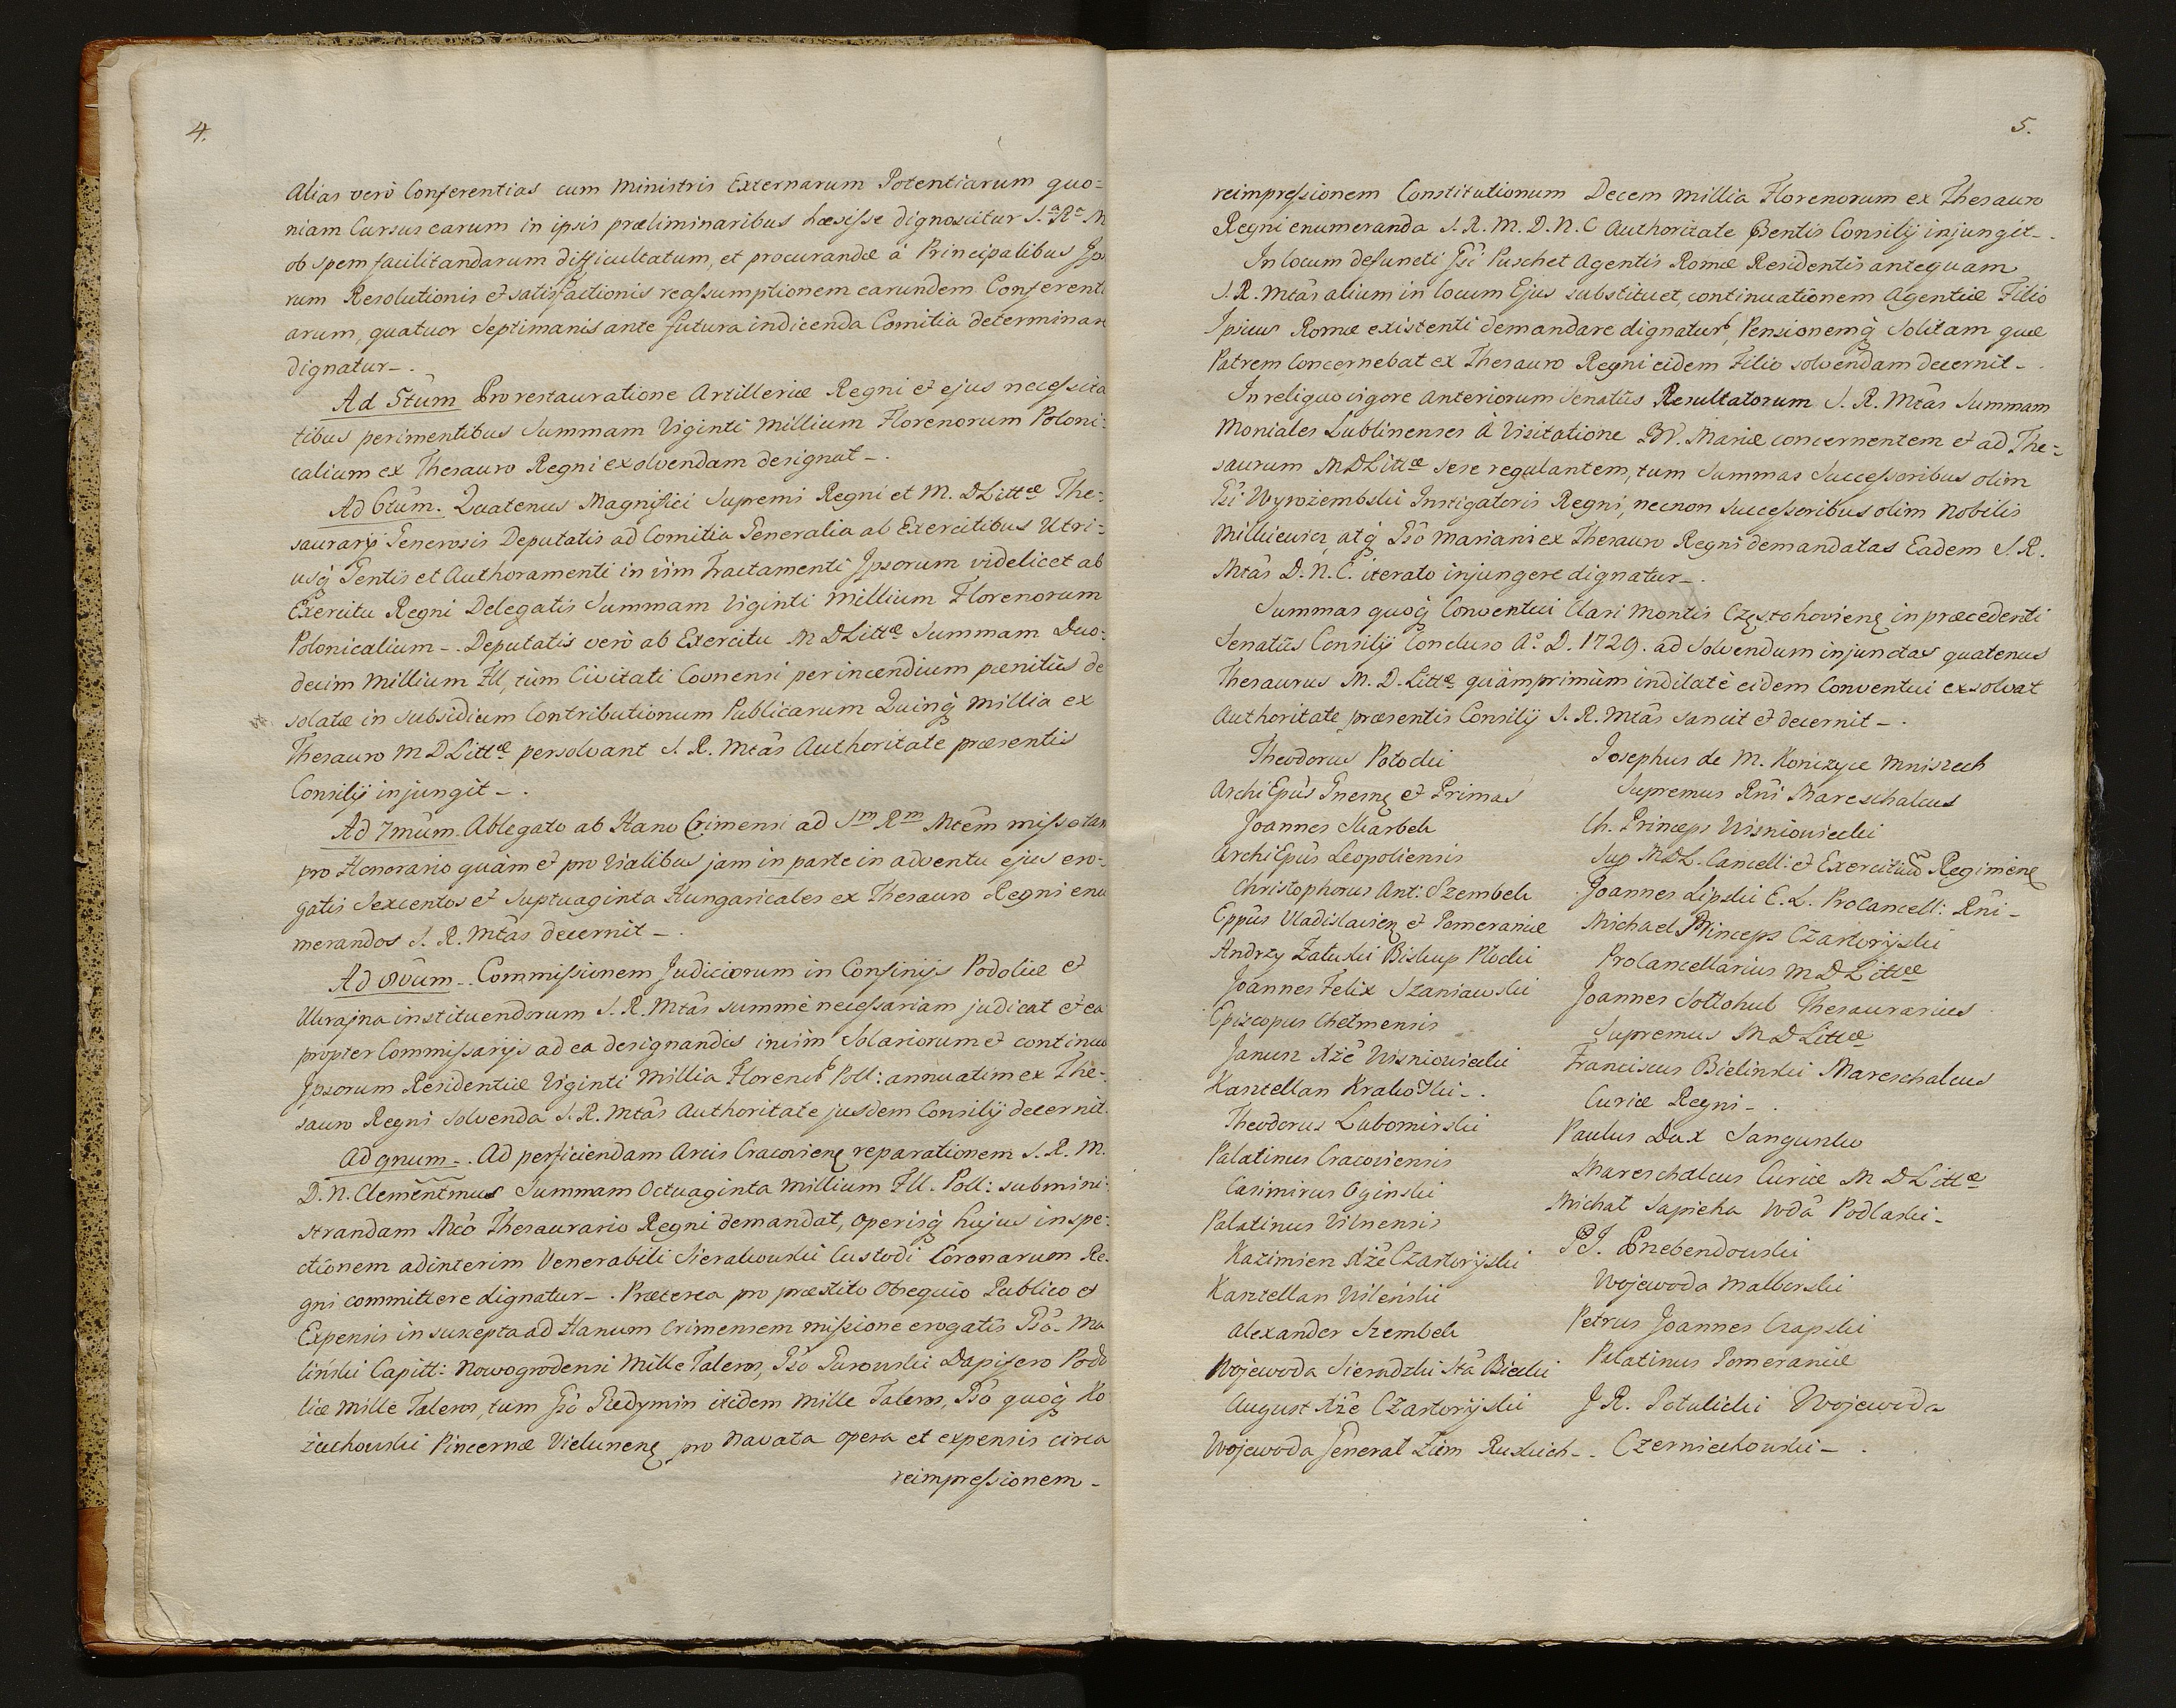 4.
Alias verò Conferentias cum Ministris Externarum Potentiarum quo=
niam Cursus earum in ipsis præliminaribus hæsisse dignoscitur S.ª Rª M
ob spem facilitandarum difficultatum, et procurandæ à Principalibus Ipso
rum Resolutionis et satisfactionis reassumptionem earundem Conferenti
arum, quatuor Septimanis ante futura indicenda Comitia determinare
dignatur_.
Ad 5tum Pro restauratione Artilleriæ Regni et ejus necessita
tibus perimentibus Summam Viginti Millium Florenorum Poloni=
calium ex Thesauro Regni exolvendam designat_.
Ad 6tum. Quatenus Magnifici Supremi Regni et M. DLittæ The=
saurarij Generosis Deputatis ad Comitia Generalia ab Exercitibus Utri=
usq̃ Gentis et Authoramenti in vim Tractamenti Ipsorum videlicet ab
Exercitu Regni Delegatis Summam Viginti Millium Florenorum
Polonicalium_. Deputatis verò ab Exercitu M DLittæ Summam Duo=
decim Millium Fll, tùm Civitati Covnensi per incendium pœnitùs de
solatæ in subsidium Contributionum Publicarum Quinq̃ Millia ex
Thesauro M DLittæ persolvant S. R. Mtãs Authoritate præsentis
Consilij injungit_.
Ad 7mũm. Ablegato ab Hano Crimensi ad Sm Rm Mtẽm misso tam
pro Honorario quàm et pro Vialibus jam in parte in adventu ejus ero=
gatis Sexcentos et Suptuaginta Hungaricales ex Thesauro Regni enu
merandos S. R. Mtãs decernit_.
Ad 8vũm_. Commissionem Judiciorum in Confinijs Podoliæ et
Ukrajna instituendorum S. R. Mtãs summè necessariam judicat et ea
propter Commissarijs ad ea designandis in vim Solariorum et continuæ
Ipsorum Residentiæ Viginti Millia Floren̄ Poll: annuatim ex The=
sauro Regni solvenda S. R. Mtãs Authoritate jusdem Consilij decernit.
Ad 9num_. Ad perficiendam Arcis Cracovien̄ reparationem S. R. M.
D. N. Clementmus Summam Octuaginta Millium Fll. Poll: submini=
strandam Mcõ Thesaurario Regni demandat, operisq̃ hujus inspe=
ctionem adinterim Venerabili Sierakowski Custodi Coronarum Re=
gni committere dignatur_. Præterea pro præstito Obsequio Publico et
Expensis in suscepta ad Hanum Crimensem missione erogatis Gsõ. Ma
liński Capitt: Nowogrodensi Mille Taleros, Gsõ Gurowski Dapifero Podo
liæ Mille Taleros, tum Gsõ Redymin itidem Mille Taleros, Gsõ quoq̃ Ko
żuchowski Pincernæ Vielunen̄ pro Navata opera et expensis circa
reimpressionem_
5.
reimpressionem Constitutionum Decem Millia Florenorum ex Thesauro
Regni enumeranda S. R. M. D. N. C Authoritate Pñentis Consilij injungit_.
In locum defuncti Gsi Puschet Agentis Romæ Residentis antequam
S. R. Mtãs alium in locum Ejus substituet, continuationem Agentiæ Filio
Ipsius Romæ existenti demandare dignatur, Pensionemq̃ Solitam quæ
Patrem Concernebat ex Thesauro Regni eidem Filio solvendam decernit_.
In reliquo vigore Anteriorum Senatûs Resultatorum S. R. Mtãs Summam
Moniales Lublinenses à Visitatione BV. Mariæ concernentem et ad The=
saurum M DLittæ sese regulantem, tum Summas Successoribus olim
Gsi Wyrożembski Instigatoris Regni, necnon Successoribus olim Nobilis
Milkiewicz, atq̃ Gsõ Mariani ex Thesauro Regni demandatas Eadem S. R.
Mtãs D. N. C. iterato injungere dignatur_.
Summas quoq̃ Conventui Clari Montis Częstohovien̄ in præcedenti
Senatûs Consilij Concluso A° D. 1729. ad Solvendum injunctas quatenus
Thesaurus M. D. Littæ quàmprimùm indilatè eidem Conventui exsolvat
Authoritate præsentis Consilij S. R. Mtãs sancit et decernit_.
Theodorus Potocki
ArchiEpũs Gnesnen̄ et Primas
Joannes Skarbek
ArchiEpũs Leopoliensis
Christophorus Ant: Szembek
Eppũs Vladislavien̄ et Pomeraniæ
Andrzy Załuski Biskup Płocki
Joannes Felix Szaniawski
Episcopus Chełmensis
Janusz Xżẽ Wisniowiecki
Kasztellan Krakowski_.
Theodorus Lubomirski
Palatinus Cracoviensis
Casimirus Oginski
Palatinus Vilnensis
Kazimierz Xżẽ Czartoryski
Kasztellan Wileński
Alexander Szembek
Wojewoda Sieradzki Stã Biecki
August Xżẽ Czartoryski
Wojewoda Generał Ziem Ruskich_.
Josephus de M. Konczyce Mniszech
Supremus Rñi Mareschalcus
Ch. Princeps Wisniowiecki
Sup M.D.L. Cancell: et Exercituũ Regimen̄
Joannes Lipski E. L. ProCancell: Rñi_
Michael Princeps Czartoryski
ProCancellarius M D Littæ
Joannes Sołłohub Thesaurarius
Supremus M D Littæ
Franciscus Bielinski Mareschalcus
Curiæ Regni_.
Paulus Dux Sangusko
Mareschalcus Curiæ M D Littæ
Michał Sapieha Wdã Podlaski_
P J. Przebendowski
Wojewoda Malborski
Petrus Joannes Czapski
Palatinus Pomeraniæ
J R. Potulicki Wojewoda
Czerniechowski_.